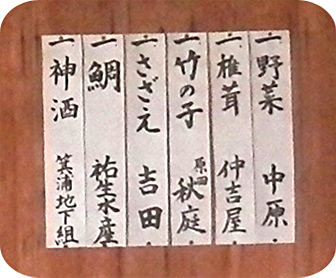 一 野菜 中原
一 椎茸 仲吉屋
一 竹の子 原田 秋庭
一 さざえ 吉田
一 鯛 祐生水産
一 神酒 箕浦地下組